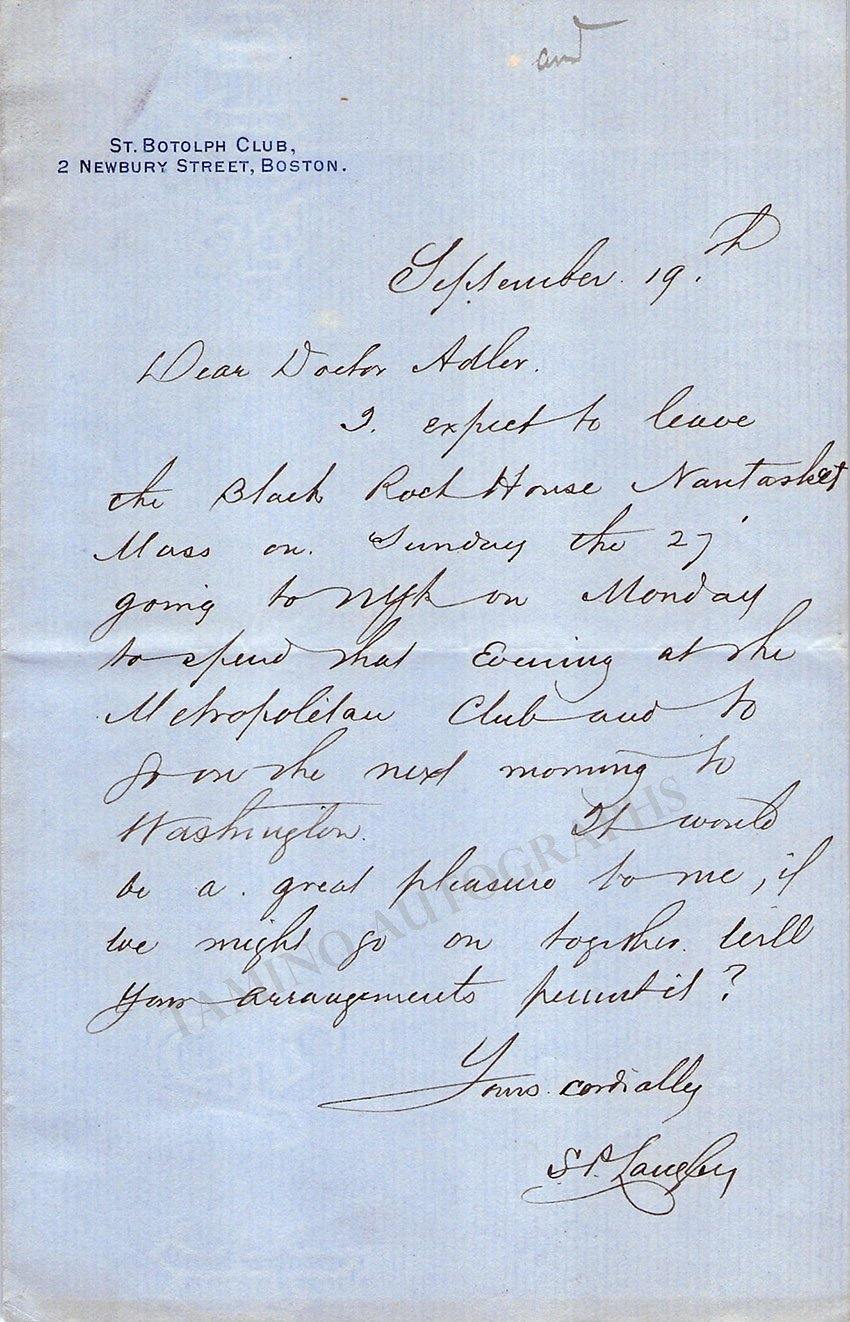 and
ST. BOTOLPH CLUB,
2 NEWBURY STREET, BOSTON.
September. 19.th
Dear Doctor Adler.
I. expect to leave
the Black Rock House Nantasket
Mass on. Sunday the 27'
going to NYk on Monday
to spend that Evening at the
Metropolitan Club and to
go on the next morning to
Washington. It would
be a. great pleasure to me, if
we might go on together. Will
your arrangements permit it?
Yours cordially
S. P. Langley
TAMINO AUTOGRAPHS